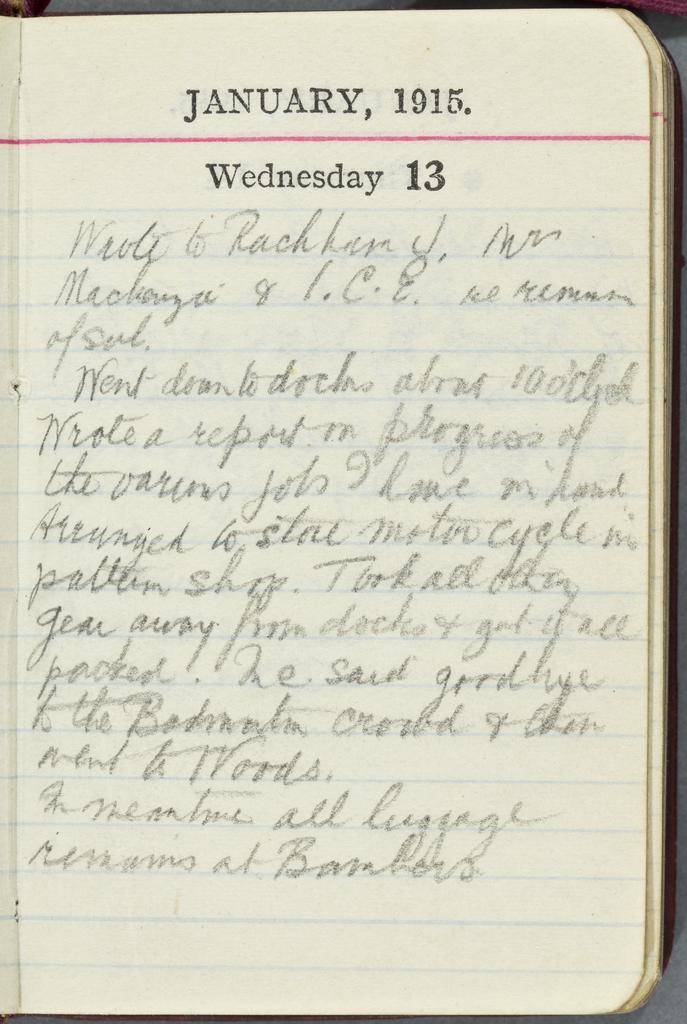 JANUARY, 1915.
Wednesday 13
Wrote to Rackham J, Mrs
Mackenzie & I.C.E. re
of
Went down to docks about 10 o'clock
Wrote a report on progress of
the various jobs I have in hand
Arranged to store motor cycle in
pattern shop. Took all other
gear away from docks & got it all
packed. said goodbye
to the Badminton crowd & then
went to Woods.
In meantime all luggage
remains at Bambers